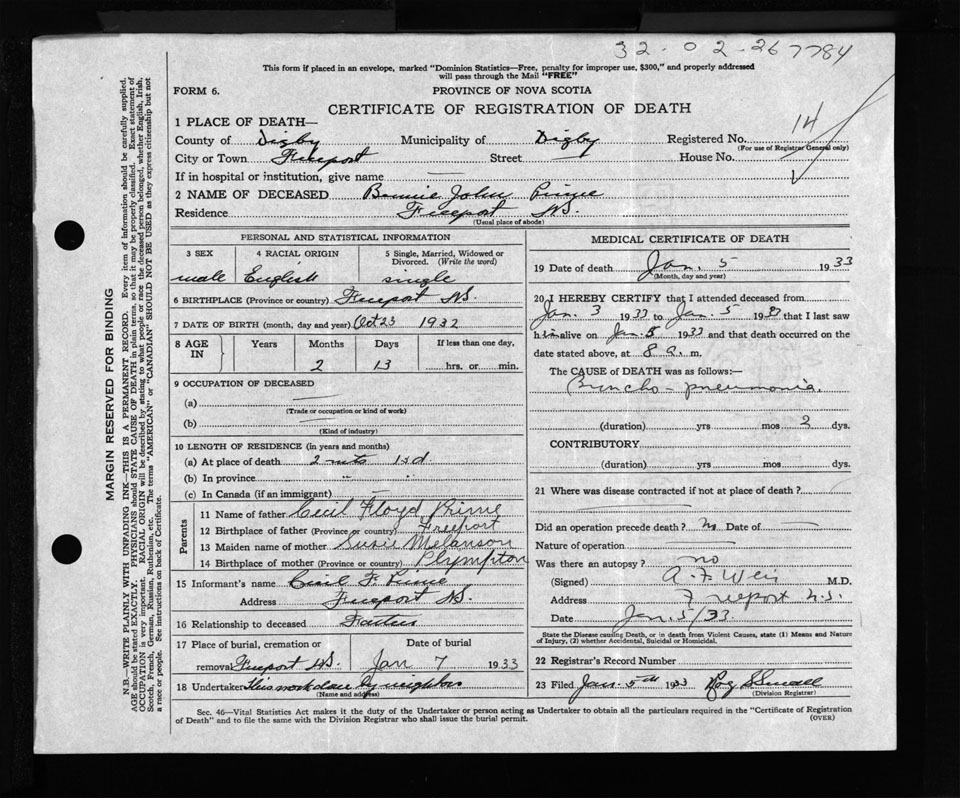 32-02-267784
This form if placed in an envelope, marked "Dominion Statistics—Free, penalty for improper use, $300," and properly addressed
will pass through the Mail "FREE"
FORM 6. PROVINCE OF NOVA SCOTIA
CERTIFICATE OF REGISTRATION OF DEATH
1 PLACE OF DEATH—
County of Digby Municipality of Digby Registered No. 14
(For use of Registrar General only)
City or Town Freeport Street — House No.
If in hospital or institution, give name —
2 NAME OF DECEASED Bennie John Prime
Residence Freeport N.S.
(Usual place of abode)
PERSONAL AND STATISTICAL INFORMATION
3 SEX 4 RACIAL ORIGIN 5 Single, Married, Widowed or Divorced. (Write the word)
male English single
6 BIRTHPLACE (Province or country) Freeport N.S.
7 DATE OF BIRTH (month, day and year) Oct 23 1932
8 AGE IN Years Months Days If less than one day,
2 13 hrs. or min.
9 OCCUPATION OF DECEASED
(a) —
(Trade or occupation or kind of work)
(b) —
(Kind of industry)
10 LENGTH OF RESIDENCE (in years and months)
(a) At place of death 2 mts 13d.
(b) In province
(c) In Canada (if an immigrant) —
Parents
11 Name of father Cecil Floyd Prime
12 Birthplace of father (Province or country) Freeport
13 Maiden name of mother Susie Melanson
14 Birthplace of mother (Province or country) Plympton
15 Informant's name Cecil F. Prime
Address Freeport N.S.
16 Relationship to deceased Father
17 Place of burial, cremation or Date of burial
removal Freeport N.S. Jan 7 1933
18 Undertaker This work done by neighbors
(Name and address)
MEDICAL CERTIFICATE OF DEATH
19 Date of death Jan. 5 1933
(Month, day and year)
20 I HEREBY CERTIFY that I attended deceased from
Jan. 3 1933 to Jan. 5 1933 that I last saw
him alive on Jan. 5 1933 and that death occurred on the
date stated above, at 8 a. m.
The CAUSE of DEATH was as follows:—
Broncho-pneumonia
(duration) yrs mos 2 dys.
CONTRIBUTORY
(duration) yrs. mos. dys.
21 Where was disease contracted if not at place of death?
Did an operation precede death? No Date of —
Nature of operation —
Was there an autopsy? no
(Signed) A. F. Weir M.D.
Address Freeport N.S.
Date Jan. 5/33
State the Disease causing Death, or in death from Violent Causes, state (1) Means and Nature
of Injury, (2) whether Accidental, Suicidal or Homicidal.
22 Registrar's Record Number
23 Filed Jan. 5th 1933
(Division Registrar)
Sec. 46—Vital Statistics Act makes it the duty of the Undertaker or person acting as Undertaker to obtain all the particulars required in the "Certificate of Registration
of Death" and to file the same with the Division Registrar who shall issue the burial permit. (OVER)
MARGIN RESERVED FOR BINDING
N.B.—WRITE PLAINLY WITH UNFADING INK—THIS IS A PERMANENT RECORD. Every item of information should be carefully supplied.
AGE should be stated EXACTLY. PHYSICIANS should STATE CAUSE OF DEATH in plain terms, so that it may be properly classified. Exact statement of
OCCUPATION is very important. RACIAL ORIGIN will be described by stating to what people or race the deceased person belonged, whether English, Irish,
Scotch, French, German, Russian, Ruthenian, etc. The terms "AMERICAN" or "CANADIAN" SHOULD NOT BE USED as they express citizenship but not
a race or people. See instructions on back of Certificate.